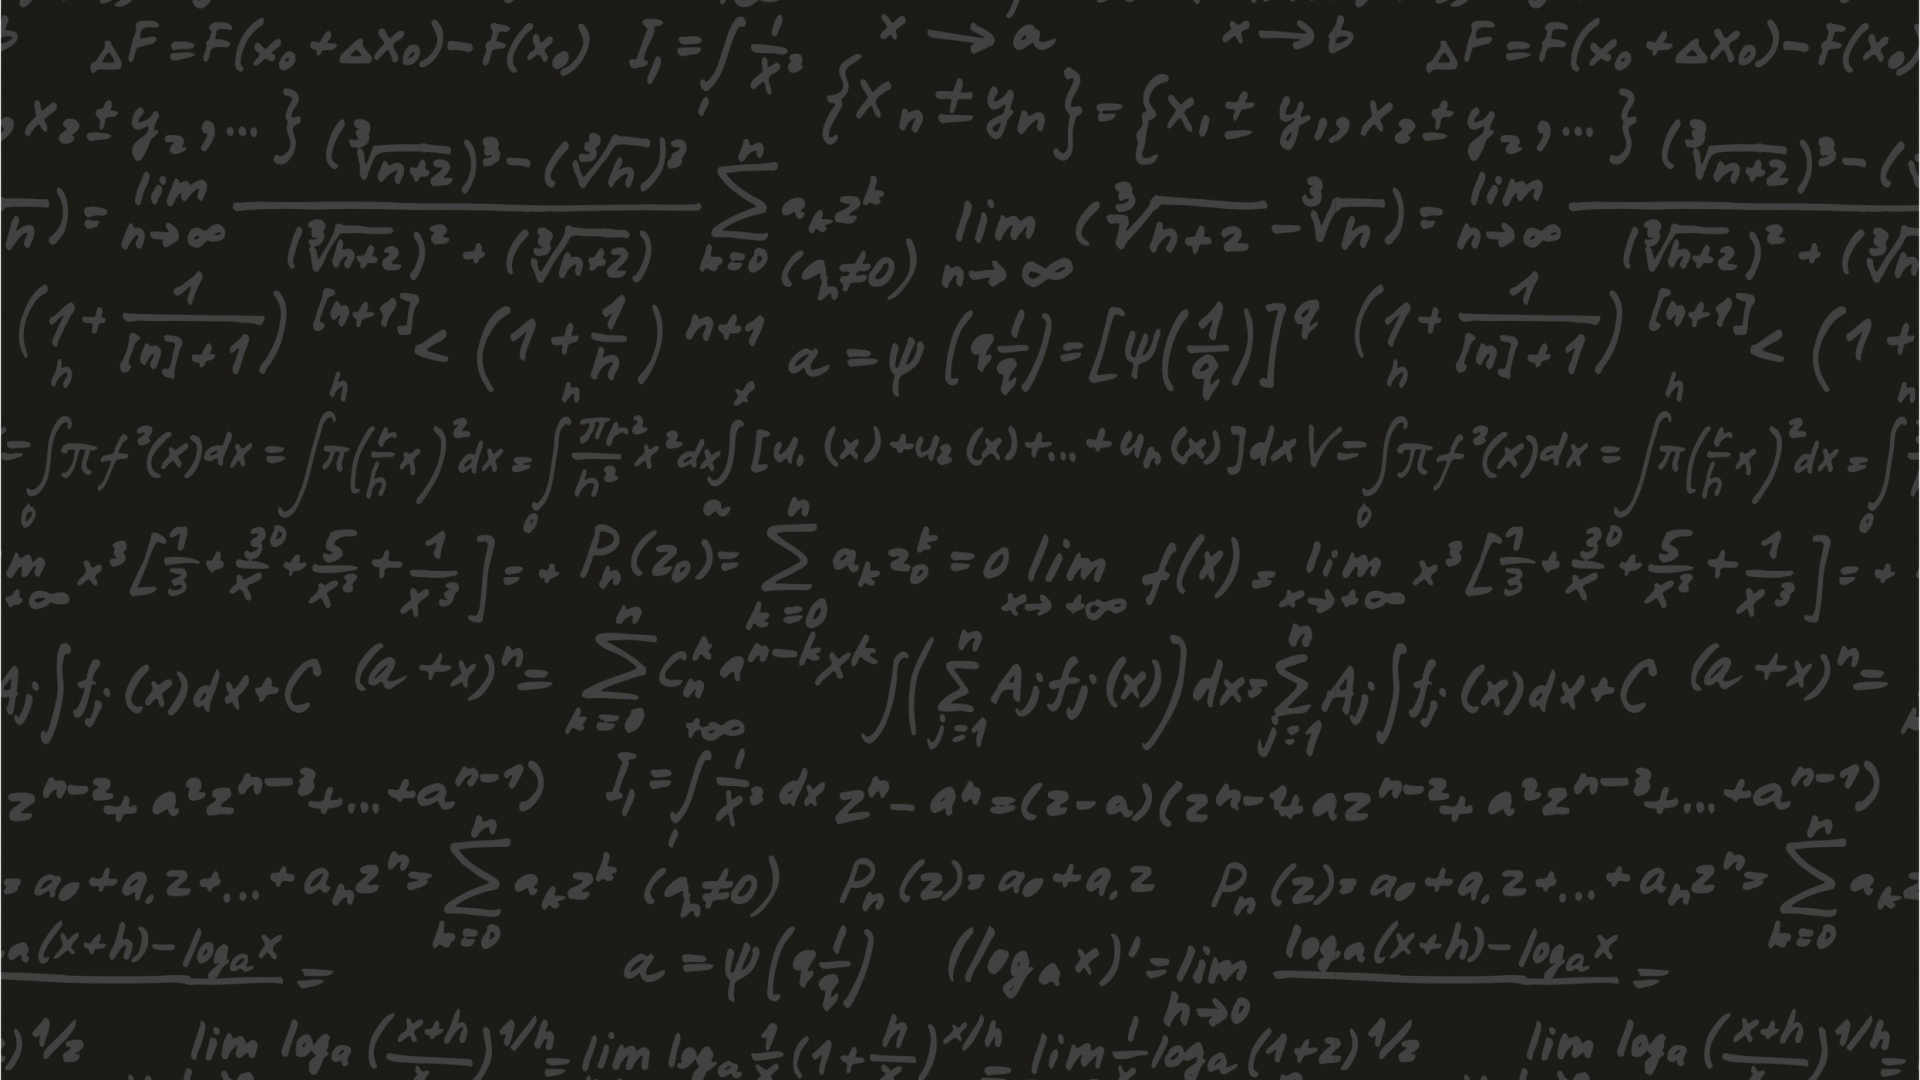 ΔF = F(x₀ + Δx₀) − F(x₀) I₁ = ∫ 1/x³ x → a x → b ΔF = F(x₀ + Δx₀) − F(x₀)
x₂ ± y₂, ... } {xₙ ± yₙ} = {x₁ ± y₁, x₂ ± y₂, ... }
h) = lim n→∞ ((∛n+2)³ − (∛h)³) / ((∛h+2)² + (∛n+2)) ∑ k=0 n aₖzᵏ (aₙ≠0) lim n→∞ (∛n+2 − ∛n) = lim n→∞ (∛n+2)³ − ( / (∛h+2)² + (∛n
(1 + 1/([n]+1))[n+1] < (1 + 1/n) n+1 a = ψ(q 1/q) = [ψ(1/q)]^q (1 + 1/([n]+1))[n+1] < (1 +
= ∫₀ʰ πf²(x)dx = ∫ʰ π(r/h x)²dx = ∫₀ʰ πr²/h² x²dx ∫ₐˣ [u₁(x) + u₂(x) + ... + uₙ(x)]dx V = ∫₀ʰ πf²(x)dx = ∫ʰ π(r/h x)²dx = ∫₀
m +∞ x³[1/3 + 30/x + 5/x² + 1/x³] = + Pₙ(z₀) = ∑ k=0 n aₖz₀ᵏ = 0 lim x→+∞ f(x) = lim x→+∞ x³[1/3 + 30/x + 5/x² + 1/x³] = +
Aj∫fj(x)dx + C (a + x)ⁿ = ∑ k=0 n Cₙᵏaⁿ⁻ᵏxᵏ ∫(∑ j=1 n Ajfj(x))dx = ∑ j=1 n Aj∫fj(x)dx + C (a + x)ⁿ =
zⁿ⁻² + a²zⁿ⁻³ + ... + aⁿ⁻¹) I₁ = ∫₁^+∞ 1/x³ dx zⁿ − aⁿ = (z − a)(zⁿ⁻¹ + azⁿ⁻² + a²zⁿ⁻³ + ... + aⁿ⁻¹)
= a₀ + a₁z + ... + aₙzⁿ = ∑ k=0 n aₖzᵏ (aₙ≠0) Pₙ(z) = a₀ + a₁z Pₙ(z) = a₀ + a₁z + ... + aₙzⁿ = ∑ k=0 n aₖz
a(x+h) − logₐx = a = ψ(q 1/q) (logₐx)' = lim h→0 (logₐ(x+h) − logₐx) =
)^1/z lim logₐ((x+h)/x)^1/h = lim logₐ 1/x (1 + h/x)^x/h = lim 1/x logₐ(1+z)^1/z lim logₐ((x+h)/x)^1/h =